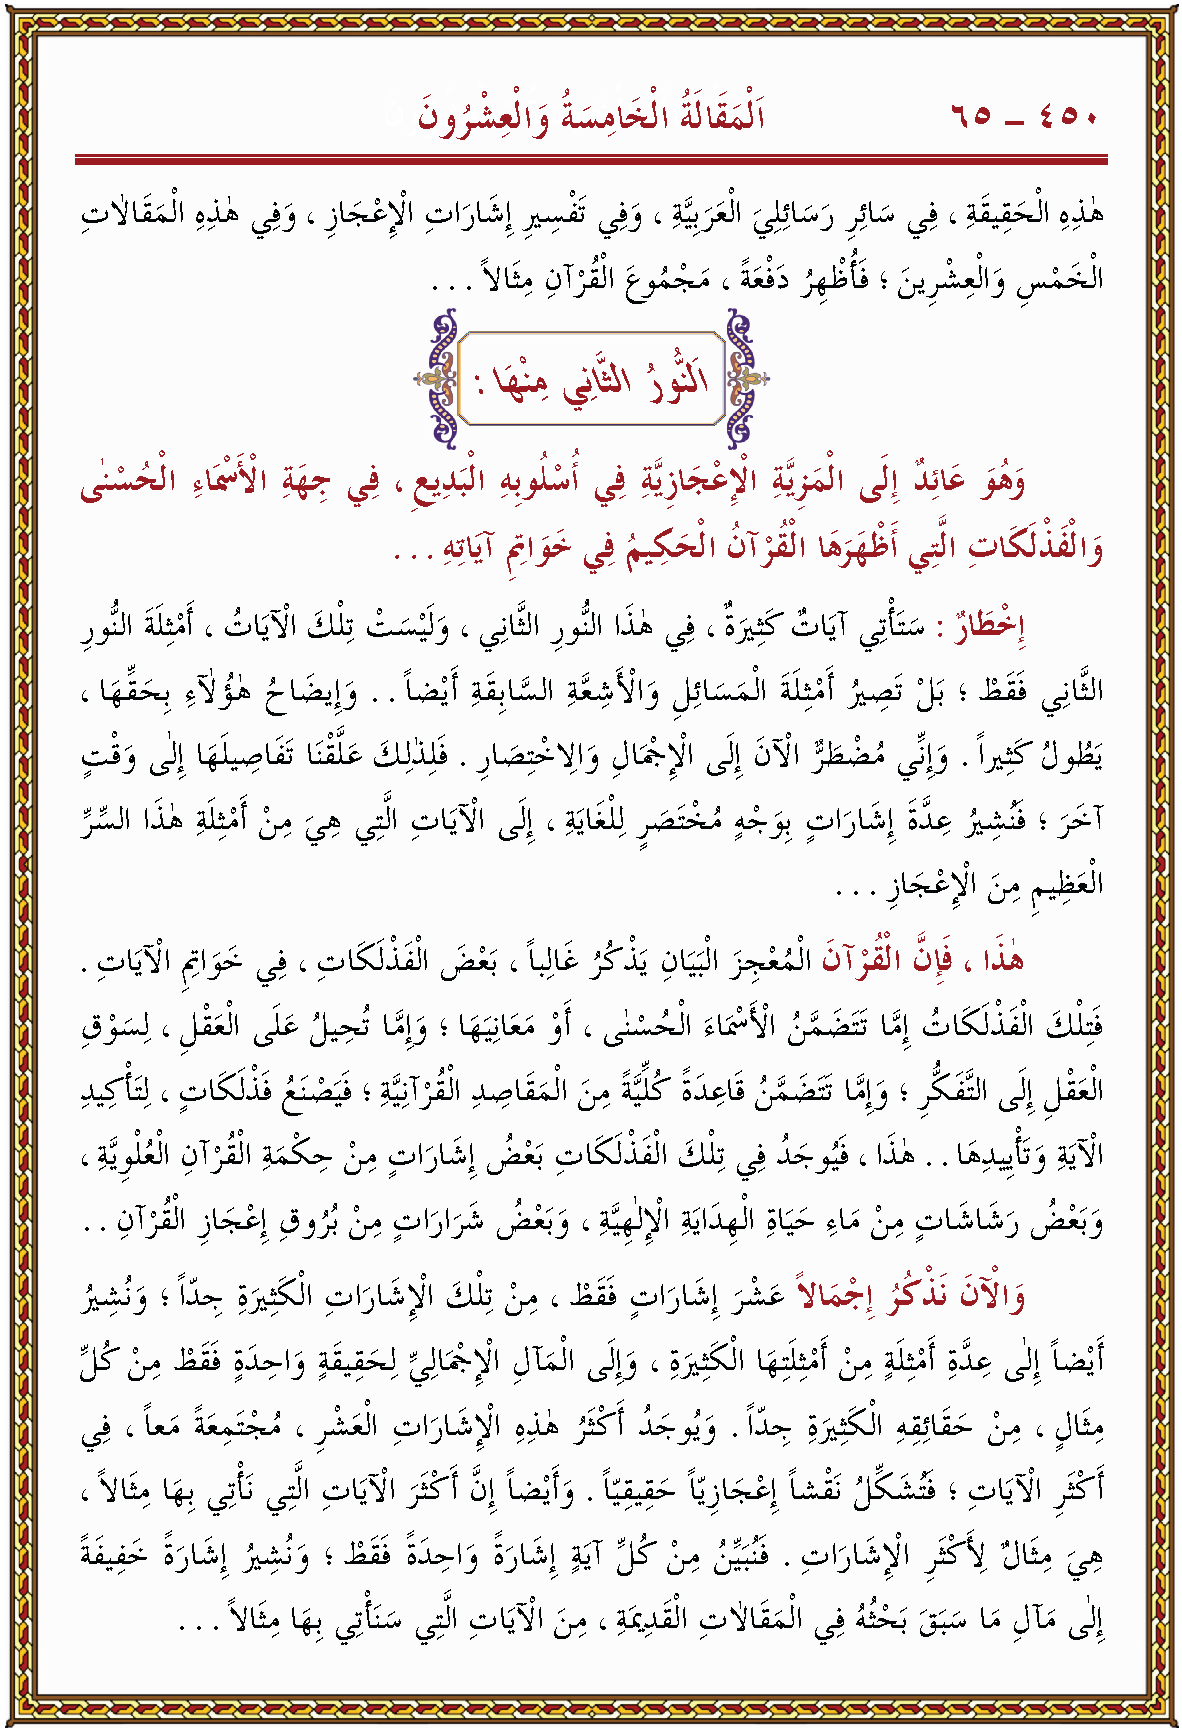 ٤٥٠ – ٦٥ اَلْمَقَالَةُ الْخَامِسَةُ وَالْعِشْرُونَ
هٰذِهِ الْحَقِيقَةِ ، فِي سَائِرِ رَسَائِلِيَ الْعَرَبِيَّةِ ، وَفِي تَفْسِيرِ إِشَارَاتِ الْإِعْجَازِ ، وَفِي هٰذِهِ الْمَقَالَاتِ
الْخَمْسِ وَالْعِشْرِينَ ؛ فَأُظْهِرُ دَفْعَةً ، مَجْمُوعَ الْقُرْآنِ مِثَالاً . . .
اَلنُّورُ الثَّانِي مِنْهَا :
وَهُوَ عَائِدٌ إِلَى الْمَزِيَّةِ الْإِعْجَازِيَّةِ فِي أُسْلُوبِهِ الْبَدِيعِ ، فِي جِهَةِ الْأَسْمَاءِ الْحُسْنٰى
وَالْفَذْلَكَاتِ الَّتِي أَظْهَرَهَا الْقُرْآنُ الْحَكِيمُ فِي خَوَاتِمِ آيَاتِهِ . . .
إِخْطَارٌ : سَتَأْتِي آيَاتٌ كَثِيرَةٌ ، فِي هٰذَا النُّورِ الثَّانِي ، وَلَيْسَتْ تِلْكَ الْآيَاتُ ، أَمْثِلَةَ النُّورِ
الثَّانِي فَقَطْ ؛ بَلْ تَصِيرُ أَمْثِلَةَ الْمَسَائِلِ وَالْأَشِعَّةِ السَّابِقَةِ أَيْضاً . . وَإِيضَاحُ هٰؤُلَآءِ بِحَقِّهَا ،
يَطُولُ كَثِيراً . وَإِنِّي مُضْطَرٌّ الْآنَ إِلَى الْإِجْمَالِ وَالِاخْتِصَارِ . فَلِذٰلِكَ عَلَّقْنَا تَفَاصِيلَهَا إِلٰى وَقْتٍ
آخَرَ ؛ فَنُشِيرُ عِدَّةَ إِشَارَاتٍ بِوَجْهٍ مُخْتَصَرٍ لِلْغَايَةِ ، إِلَى الْآيَاتِ الَّتِي هِيَ مِنْ أَمْثِلَةِ هٰذَا السِّرِّ
الْعَظِيمِ مِنَ الْإِعْجَازِ . . .
هٰذَا ، فَإِنَّ الْقُرْآنَ الْمُعْجِزَ الْبَيَانِ يَذْكُرُ غَالِباً ، بَعْضَ الْفَذْلَكَاتِ ، فِي خَوَاتِمِ الْآيَاتِ .
فَتِلْكَ الْفَذْلَكَاتُ إِمَّا تَتَضَمَّنُ الْأَسْمَاءَ الْحُسْنٰى ، أَوْ مَعَانِيَهَا ؛ وَإِمَّا تُحِيلُ عَلَى الْعَقْلِ ، لِسَوْقِ
الْعَقْلِ إِلَى التَّفَكُّرِ ؛ وَإِمَّا تَتَضَمَّنُ قَاعِدَةً كُلِّيَّةً مِنَ الْمَقَاصِدِ الْقُرْآنِيَّةِ ؛ فَيَصْنَعُ فَذْلَكَاتٍ ، لِتَأْكِيدِ
الْآيَةِ وَتَأْيِيدِهَا . . هٰذَا ، فَيُوجَدُ فِي تِلْكَ الْفَذْلَكَاتِ بَعْضُ إِشَارَاتٍ مِنْ حِكْمَةِ الْقُرْآنِ الْعُلْوِيَّةِ ،
وَبَعْضُ رَشَاشَاتٍ مِنْ مَاءِ حَيَاةِ الْهِدَايَةِ الْإِلٰهِيَّةِ ، وَبَعْضُ شَرَارَاتٍ مِنْ بُرُوقِ إِعْجَازِ الْقُرْآنِ . .
وَالْآنَ نَذْكُرُ إِجْمَالاً عَشْرَ إِشَارَاتٍ فَقَطْ ، مِنْ تِلْكَ الْإِشَارَاتِ الْكَثِيرَةِ جِدّاً ؛ وَنُشِيرُ
أَيْضاً إِلٰى عِدَّةِ أَمْثِلَةٍ مِنْ أَمْثِلَتِهَا الْكَثِيرَةِ ، وَإِلَى الْمَآلِ الْإِجْمَالِيِّ لِحَقِيقَةٍ وَاحِدَةٍ فَقَطْ مِنْ كُلِّ
مِثَالٍ ، مِنْ حَقَائِقِهِ الْكَثِيرَةِ جِدّاً . وَيُوجَدُ أَكْثَرُ هٰذِهِ الْإِشَارَاتِ الْعَشْرِ ، مُجْتَمِعَةً مَعاً ، فِي
أَكْثَرِ الْآيَاتِ ؛ فَتُشَكِّلُ نَقْشاً إِعْجَازِيّاً حَقِيقِيّاً . وَأَيْضاً إِنَّ أَكْثَرَ الْآيَاتِ الَّتِي نَأْتِي بِهَا مِثَالاً ،
هِيَ مِثَالٌ لِأَكْثَرِ الْإِشَارَاتِ . فَنُبَيِّنُ مِنْ كُلِّ آيَةٍ إِشَارَةً وَاحِدَةً فَقَطْ ؛ وَنُشِيرُ إِشَارَةً خَفِيفَةً
إِلٰى مَآلِ مَا سَبَقَ بَحْثُهُ فِي الْمَقَالَاتِ الْقَدِيمَةِ ، مِنَ الْآيَاتِ الَّتِي سَنَأْتِي بِهَا مِثَالاً . . .